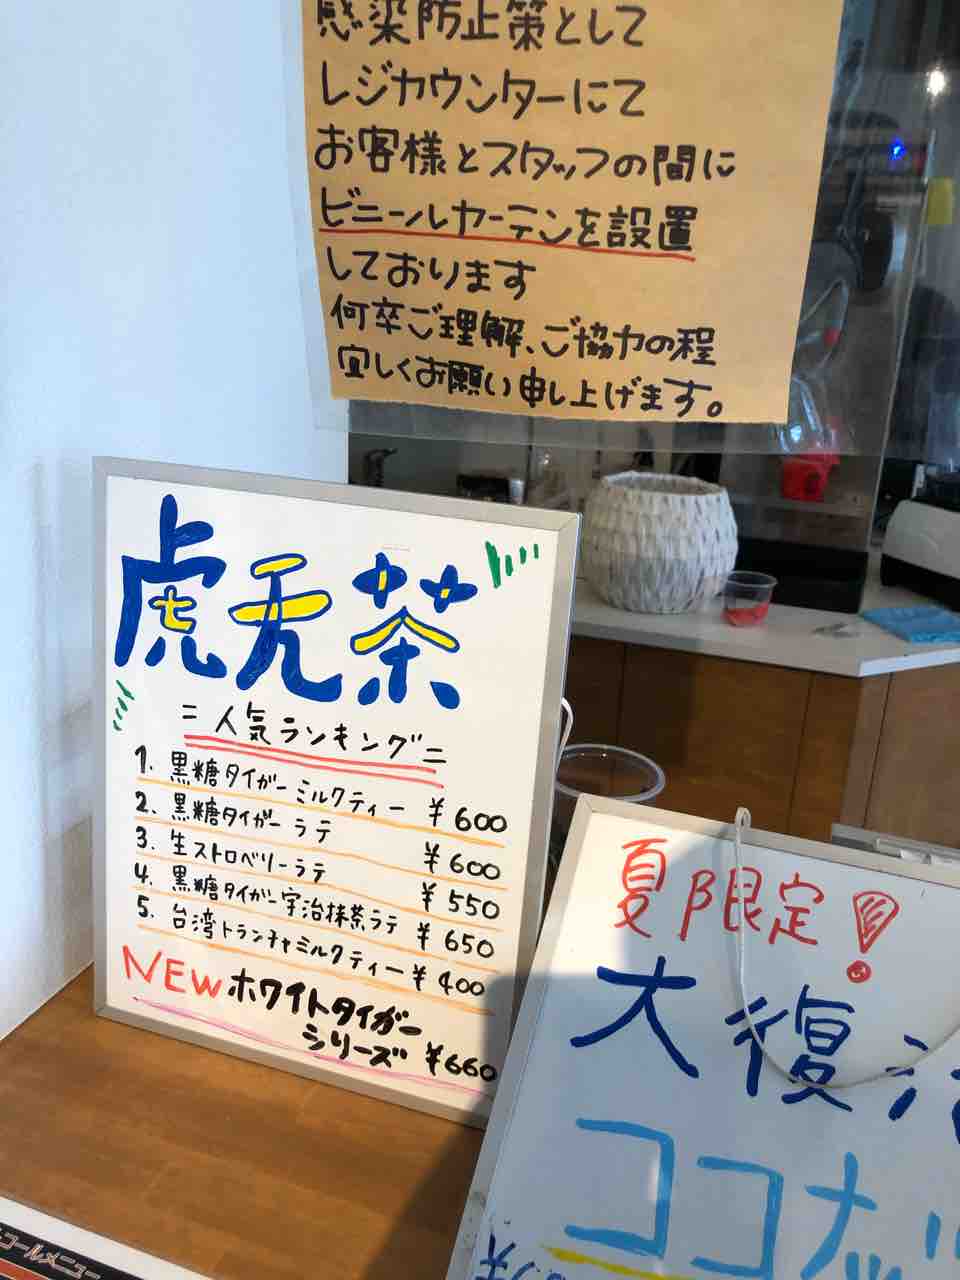 感染防止策として
レジカウンターにて
お客様とスタッフの間に
ビニールカーテンを設置
しております
何卒ご理解、ご協力の程
宜しくお願い申し上げます。
虎无茶
＝人気ランキング＝
1. 黒糖タイガーミルクティー ¥600
2. 黒糖タイガーラテ ¥600
3. 生ストロベリーラテ ¥550
4. 黒糖タイガー宇治抹茶ラテ ¥650
5. 台湾トランチャミルクティー ¥400
NEW ホワイトタイガー
シリーズ ¥660
夏限定!
大復活
ココナッ
コールメニュー